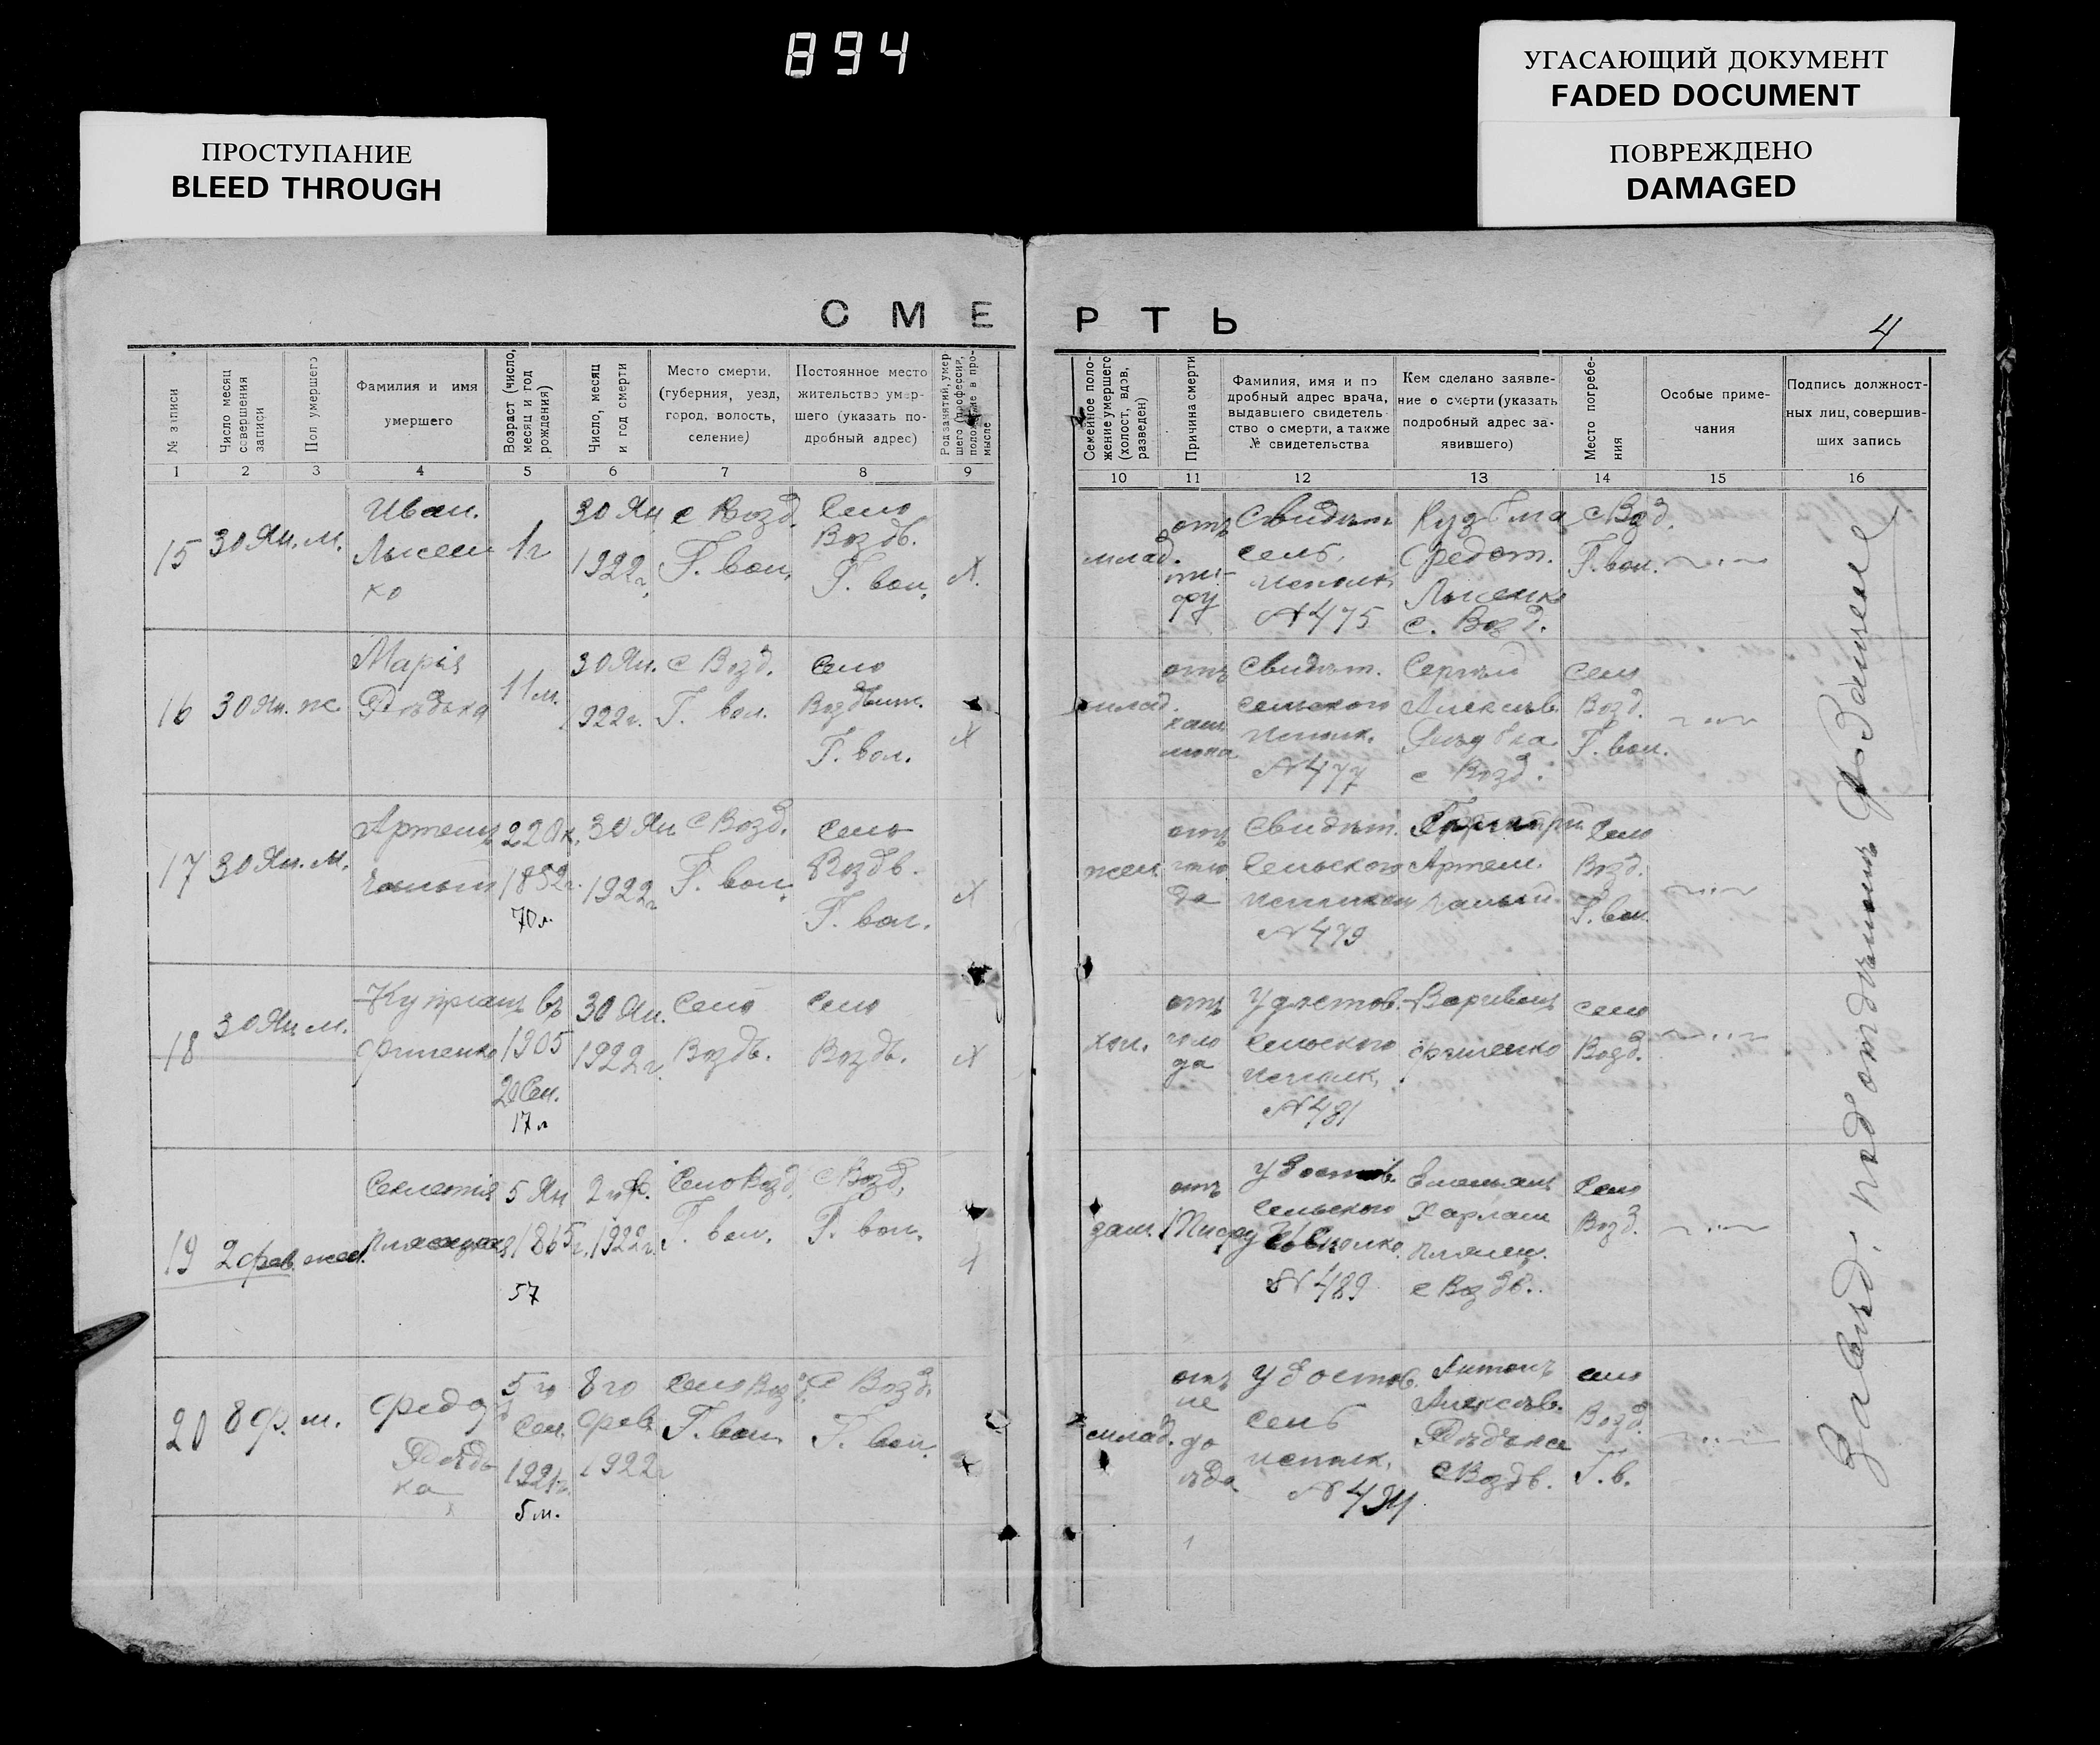 894
УГАСАЮЩИЙ ДОКУМЕНТ
FADED DOCUMENT
ПОВРЕЖДЕНО
DAMAGED
ПРОСТУПАНИЕ
BLEED THROUGH
СМЕ
РТЬ
4
№ записи
Число месяц совершения записи
Пол умершего
Фамилия и имя
умершего
Возраст (число, месяц и год рождения)
Число, месяц и год смерти
Место смерти.
(губерния, уезд,
город, волость,
селение)
Постоянное место
жительство умер-
шего (указать по-
дробный адрес)
Род занятий, умер
шего (профессия,
положение в про-
мысле
1 2 3 4 5 6 7 8 9
Семейное поло-
жение умершего
(холост, вдов,
разведен)
Причина смерти
Фамилия, имя и по
дробный адрес врача,
выдавшего свидетель
ство о смерти, а также
№ свидетельства
Кем сделано заявле-
ние о смерти (указать
подробный адрес за-
явившего)
Место погребе-
ния
Особые приме-
чания
Подпись должност-
ных лиц, совершив-
ших запись
10 11 12 13 14 15 16
15
30 Ян.
м.
Иван.
Лысен
ко
1 г
30 Ян
1922 г.
с Возд.
Г. вол.
Село
Воздв.
Г. вол.
млад.
отъ
ти-
фу
Свидѣт.
сель.
исполк.
№ 475
Кузьма
Федот.
Лысенко
с. Возд.
с Возд.
Г. вол.
16
30 Ян.
ж
Марія
Дѣдька
11 м.
30 Ян.
1922 г.
с Возд.
Г. вол.
Село
Воздвиж.
Г. вол.
млад.
отъ
Свидѣт.
сельского
Исполк.
№ 477
Сергѣй
Алексѣев.
с Возд.
село
Возд.
Г. вол.
17
30 Ян.
м.
Артемъ
22 Ок.
1852 г.
70 л.
30 Ян
1922 г.
с Возд.
Г. вол.
Село
Воздв.
Г. вол.
жен.
отъ
голо
да
Свидѣт.
Сельского
№ 479
Артем.
Село
Возд.
Г. вол.
18
30 Ян
м.
Купріянъ
въ
1905
20 Сен.
17 л
30 Ян.
1922 г.
Село
Воздв.
Село
Воздв.
хол.
отъ
голо
да
Удостов.
Сельского
исполк.
№ 481
село
Возд.
19
2 фев.
жен.
Секлетія
5 Ян
1865 г.
57
2 го ф.
1922 г.
Село Возд
Г. вол.
с Возд.
Г. вол.
зам.
отъ
Тифу
Удостов.
Сельского
№ 489
Емельянъ
Харлам
с Воздв.
Село
Возд.
20
8 ф.
м.
Федо
Дѣдь
ка
5 го
Сен.
1921 г.
5 м.
8 го
Фев.
1922 г
Село Возд
Г. вол.
с Возд.
Г. вол.
млад.
отъ
не
до
ѣда
Удостов.
сель
исполк.
№ 494
Антонъ
Алексѣев.
Дѣдька
с Воздв.
село
Возд.
Г. в.
Завѣд. подотдѣломъ